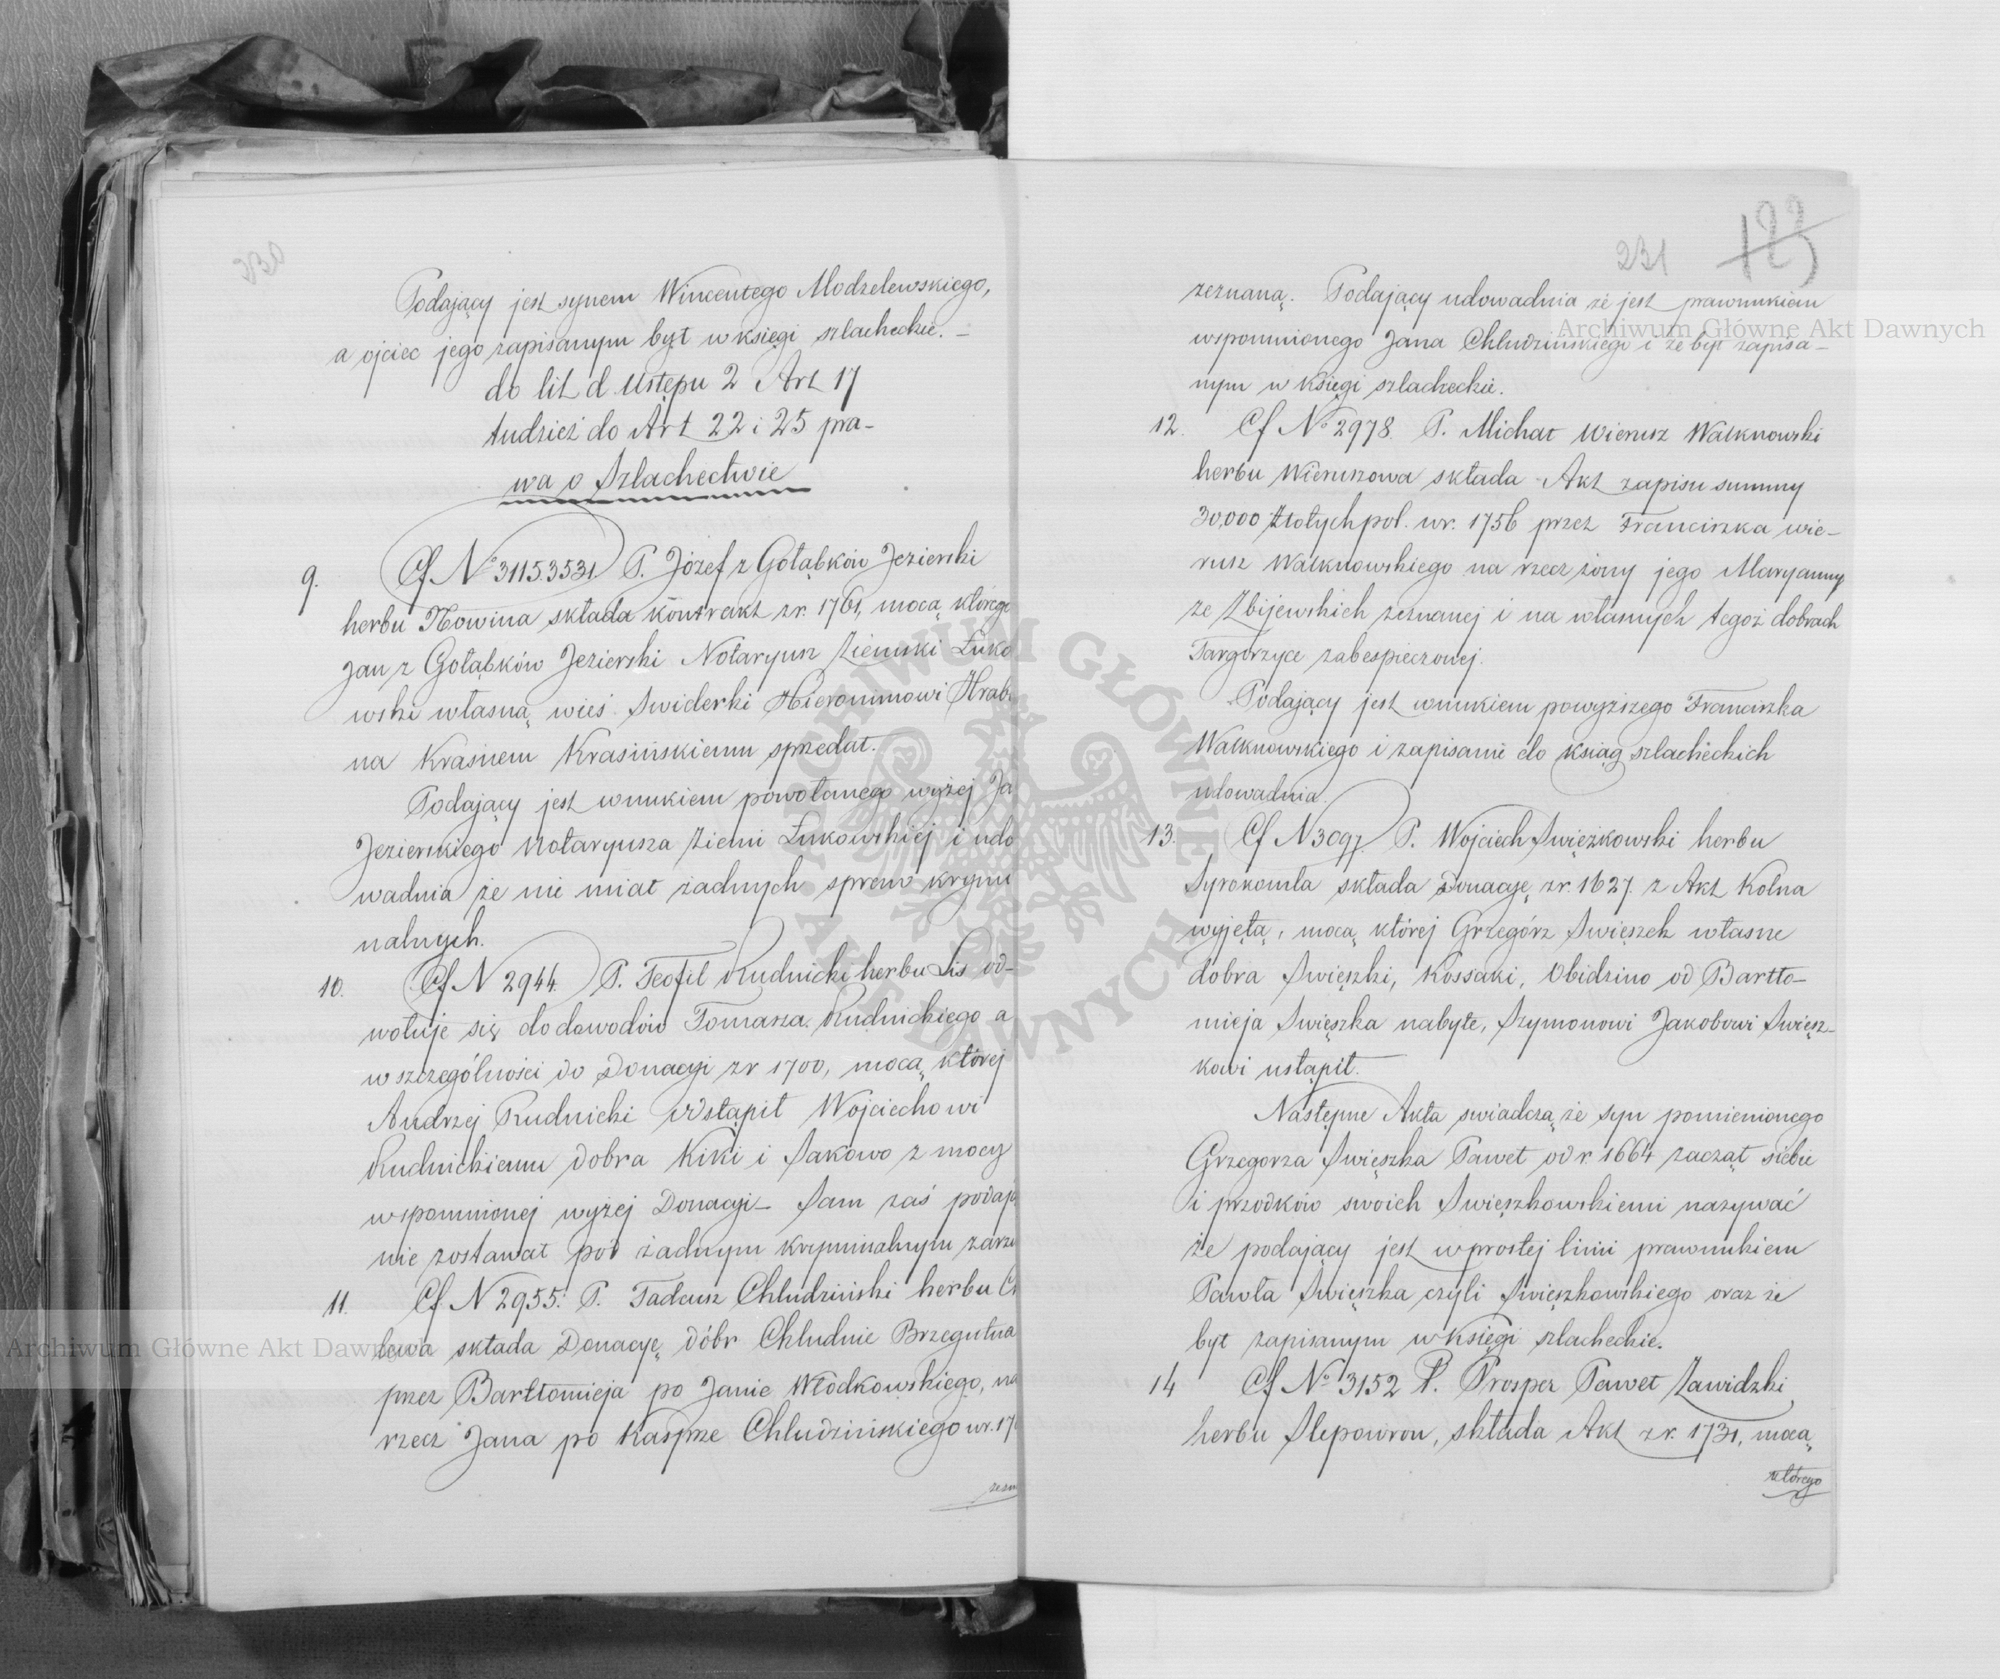 230
Podający jest synem Wincentego Modzelewskiego,
a ojciec jego zapisanym był w księgi szlacheckie. –
do lit d Ustępu 2 Art 17
tudzież do Art 22 i 25 pra-
wa o Szlachectwie
9. Cf. N° 3115.3531 P. Józef z Gołąbków Jezierski
herbu Nowina składa kontrakt z r. 1761, mocą którego
Jan z Gołąbków Jezierski Notaryusz Ziemski Łuko
wski własną wieś Swiderki Hieronimowi Hrab.
na Krasnem Krasińskiemu sprzedał.
Podający jest wnukiem powołanego wyżej Ja
Jezierskiego Notaryusza Ziemi Łukowskiej i udo
wadnia że nie miał żadnych spraw krymi
nalnych.
10. Cf N 2944. P. Teofil Rudnicki herbu Lis od-
wołuje się do dowodów Tomasza Rudnickiego a
w szczególności do Donacyi z r 1700, mocą której
Andrzej Rudnicki odstąpił Wojciechowi
Rudnickiemu dobra Kiki i Sakowo z mocy
wspomnionej wyżej Donacyi – Sam zaś podają
nie zostawał pod żadnym kryminalnym zarzu
11. Cf. N 2955. P. Tadeusz Chludziński herbu Ch
lewa składa Donacyę dóbr Chludnie Brzegulna
przez Bartłomieja po Janie Włodkowskiego, na
rzecz Jana po Kasprze Chludzińskiego w r. 17
zezn
231 123
zeznaną. Podający udowadnia że jest prawnukiem
wspomnionego Jana Chludzińskiego i że był zapisa-
nym w księgi szlacheckie.
12. Cf N° 2978. P. Michał Wierusz Walknowski
herbu Wieruszowa składa Akt zapisu summy
30,000 Złotych pol. w r. 1756 przez Franciszka Wie-
rusz Walknowskiego na rzecz żony jego Maryanny
ze Zbijewskich zeznanej i na własnych tegoż dobrach
Targorzyce zabespieczonej.
Podający jest wnukiem powyższego Franciszka
Walknowskiego i zapisanie do ksiąg szlacheckich
udowadnia.
13. Cf N 3097. P. Wojciech Swięzkowski herbu
Syrokomla składa Donacyę z r. 1627. z Akt Kolna
wyjętą, mocą której Grzegórz Swięszek własne
dobra Swięszki, Kossaki, Obidzino od Bartło-
mieja Swięszka nabyte, Szymonowi Jakobowi Swięsz-
kowi ustąpił.
Następne Akta swiadczą że syn pomienionego
Grzegorza Swięszka Paweł od r. 1664 zaczął siebie
i przodków swoich Swięszkowskiemi nazywać
że podający jest w prostej linii prawnukiem
Pawła Swięszka czyli Swięszkowskiego oraz że
był zapisanym w księgi szlacheckie.
14 Cf N° 3152 P. Prosper Paweł Zawidzki
herbu Slepowron, składa Akt z r. 1731, mocą
którego
Archiwum Główne Akt Dawnych
Archiwum Główne Akt Dawnych
ARCHIWUM GŁÓWNE AKT DAWNYCH